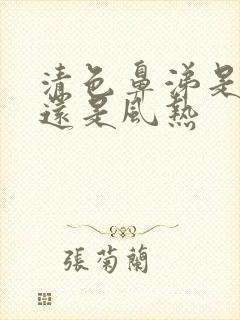 清色鼻涕是
還是風熱
張菊蘭